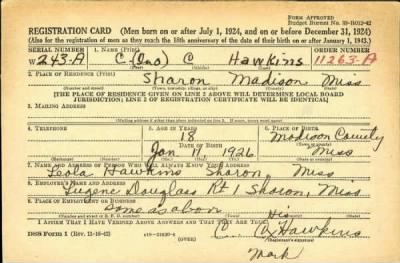 FORM APPROVED
Budget Bureau No. 33-R012-42
REGISTRATION CARD (Men born on or after July 1, 1924, and on or before December 31, 1924)
(Also for the registration of men as they reach the 18th anniversary of the date of their birth on or after January 1, 1943.)
SERIAL NUMBER 1. NAME (Print) ORDER NUMBER
W 243-A C (Ono) C Hawkins 11263-A
(First) (Middle) (Last)
2. PLACE OF RESIDENCE (Print)
Sharon Madison Miss
[THE PLACE OF RESIDENCE GIVEN ON LINE 2 ABOVE WILL DETERMINE LOCAL BOARD
JURISDICTION; LINE 2 OF REGISTRATION CERTIFICATE WILL BE IDENTICAL]
3. MAILING ADDRESS
[Mailing address if other than place indicated on line 2. If same, insert word same]
4. TELEPHONE 5. AGE IN YEARS 6. PLACE OF BIRTH
18 Madison County
DATE OF BIRTH
Jan 11 1926 Miss
7. NAME AND ADDRESS OF PERSON WHO WILL ALWAYS KNOW YOUR ADDRESS
Leola Hawkins Sharon, Miss
8. EMPLOYER'S NAME AND ADDRESS
Eugene Douglass Rt 1 Sharon, Miss
9. PLACE OF EMPLOYMENT OR BUSINESS
Same as above His
I AFFIRM THAT I HAVE VERIFIED ABOVE ANSWERS AND THAT THEY ARE TRUE.
DSS Form 1 (Rev. 11-16-42) (OVER) C. C. Hawkins
(Registrant's signature)
Mark